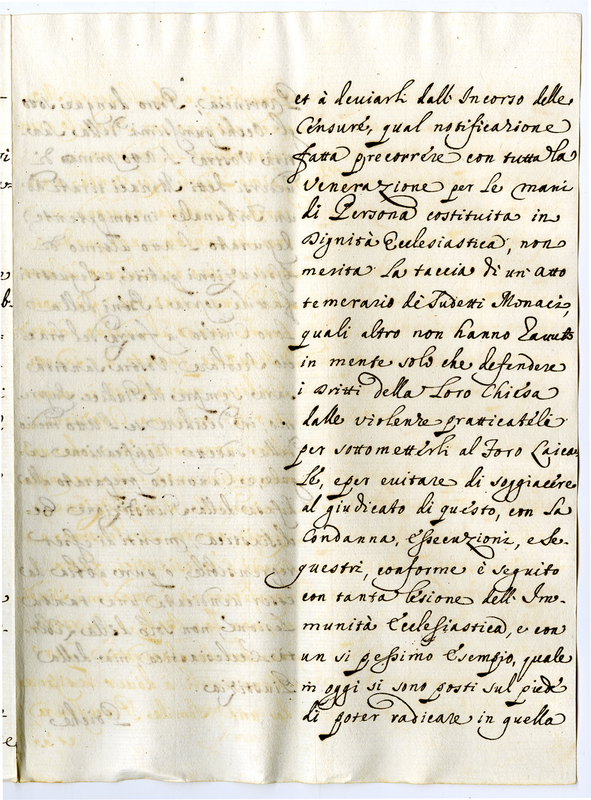 et à deviarli dall'Incorso delle
Censure, qual notificazione
fatta precorrere con tutta la
venerazione per le mani
di Persona costituita in
Dignità Ecclesiastica, non
merita la taccia di un atto
temerario de Sudetti Monaci,
quali altro non hanno havuto
in mente solo che defendere
i Dritti della Loro Chiesa
dalle violenze pratticateli
per sottometterli al Foro Laica-
le, e per evitare di soggiacere
al giudicato di questo, con la
Condanna, Essecuzioni, e Se-
questri, conforme è seguito
con tanta lesione dell'Im-
munità Ecclesiastica, e con
un sì pessimo Esempio, quale
in oggi si sono posti sul piede
di poter radicare in quella